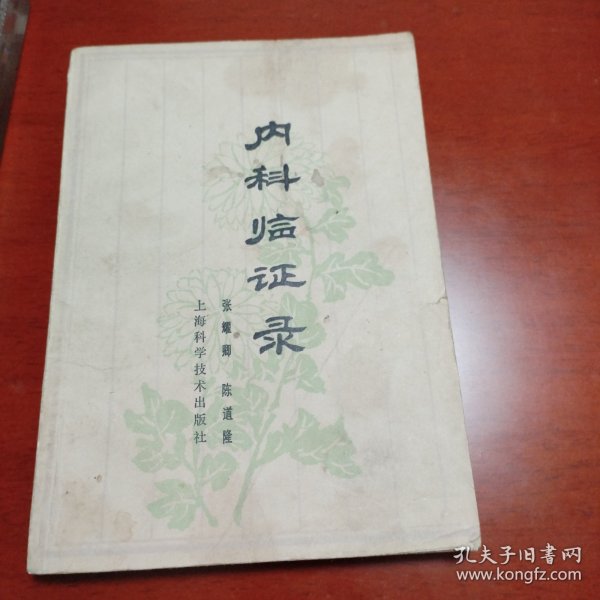 内科临证录
张耀卿 陈道隆
上海科学技术出版社
孔夫子旧书网
www.kongfz.com